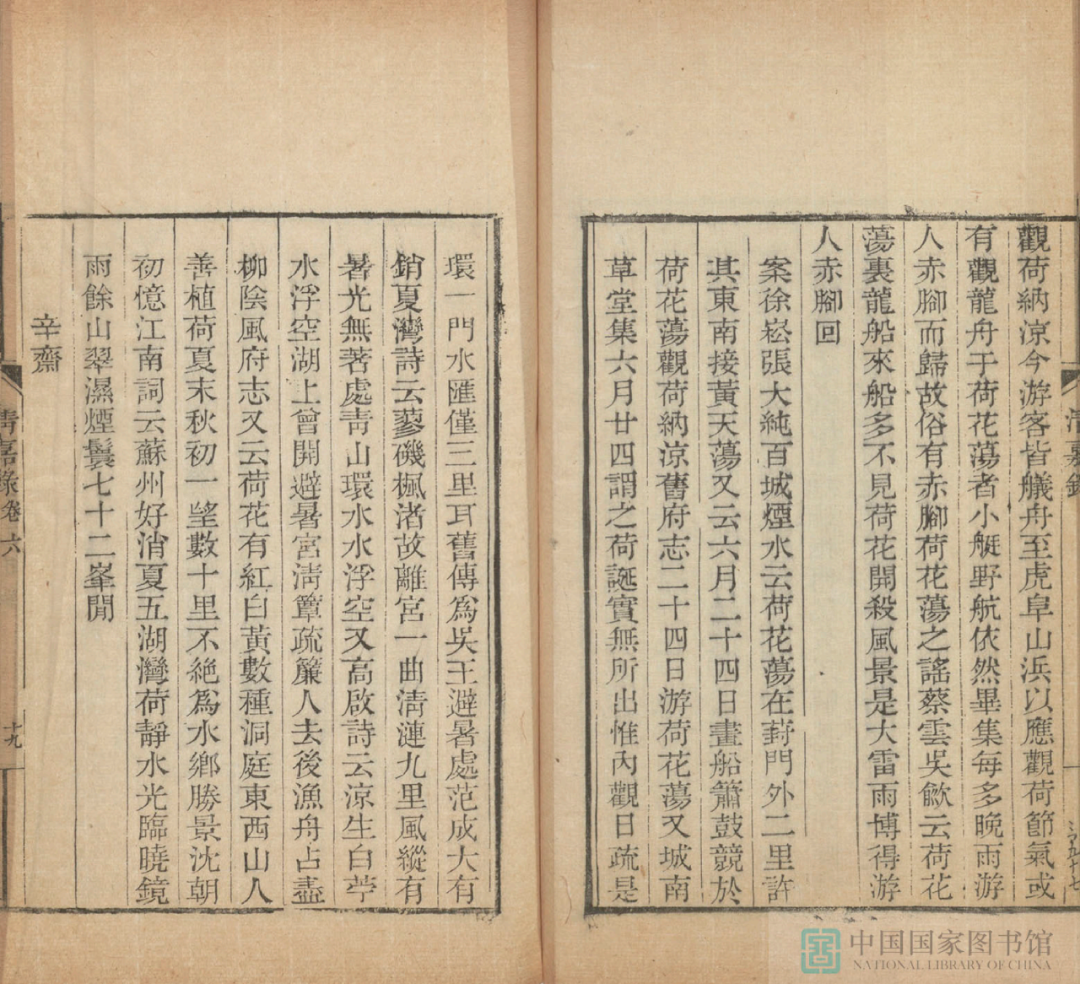 觀荷納涼今游客皆艤舟至虎阜山浜以應觀荷節氣或
有觀龍舟于荷花蕩者小艇野航依然畢集每多晚雨游
人赤腳而歸故俗有赤腳荷花蕩之謠蔡雲吳歈云荷花
蕩裏龍船來船多不見荷花開殺風景是大雷雨博得游
人赤腳回
案徐崧張大純百城煙水云荷花蕩在葑門外二里許
其東南接黃天蕩又云六月二十四日畫船簫鼓競於
荷花蕩觀荷納涼舊府志二十四日游荷花蕩又城南
草堂集六月廿四謂之荷誕實無所出惟內觀日疏是
環一門水匯僅三里耳舊傳爲吳王避暑處范成大有
銷夏灣詩云蓼磯楓渚故離宮一曲清漣九里風縱有
暑光無著處青山環水水浮空又高啟詩云涼生白苧
水浮空湖上曾開避暑宮清簟疏簾人去後漁舟占盡
柳陰風府志又云荷花有紅白黃數種洞庭東西山人
善植荷夏末秋初一望數十里不絕爲水鄉勝景沈朝
初憶江南詞云蘇州好消夏五湖灣荷靜水光臨曉鏡
雨餘山翠濕煙鬟七十二峯閒
辛齋
清嘉錄卷六
十九
中国国家图书馆
NATIONAL LIBRARY OF CHINA